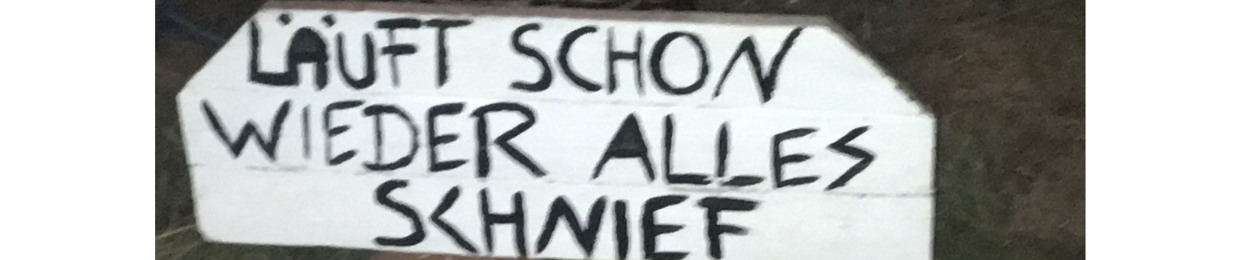 LÄUFT SCHON
WIEDER ALLES
SCHNIEF